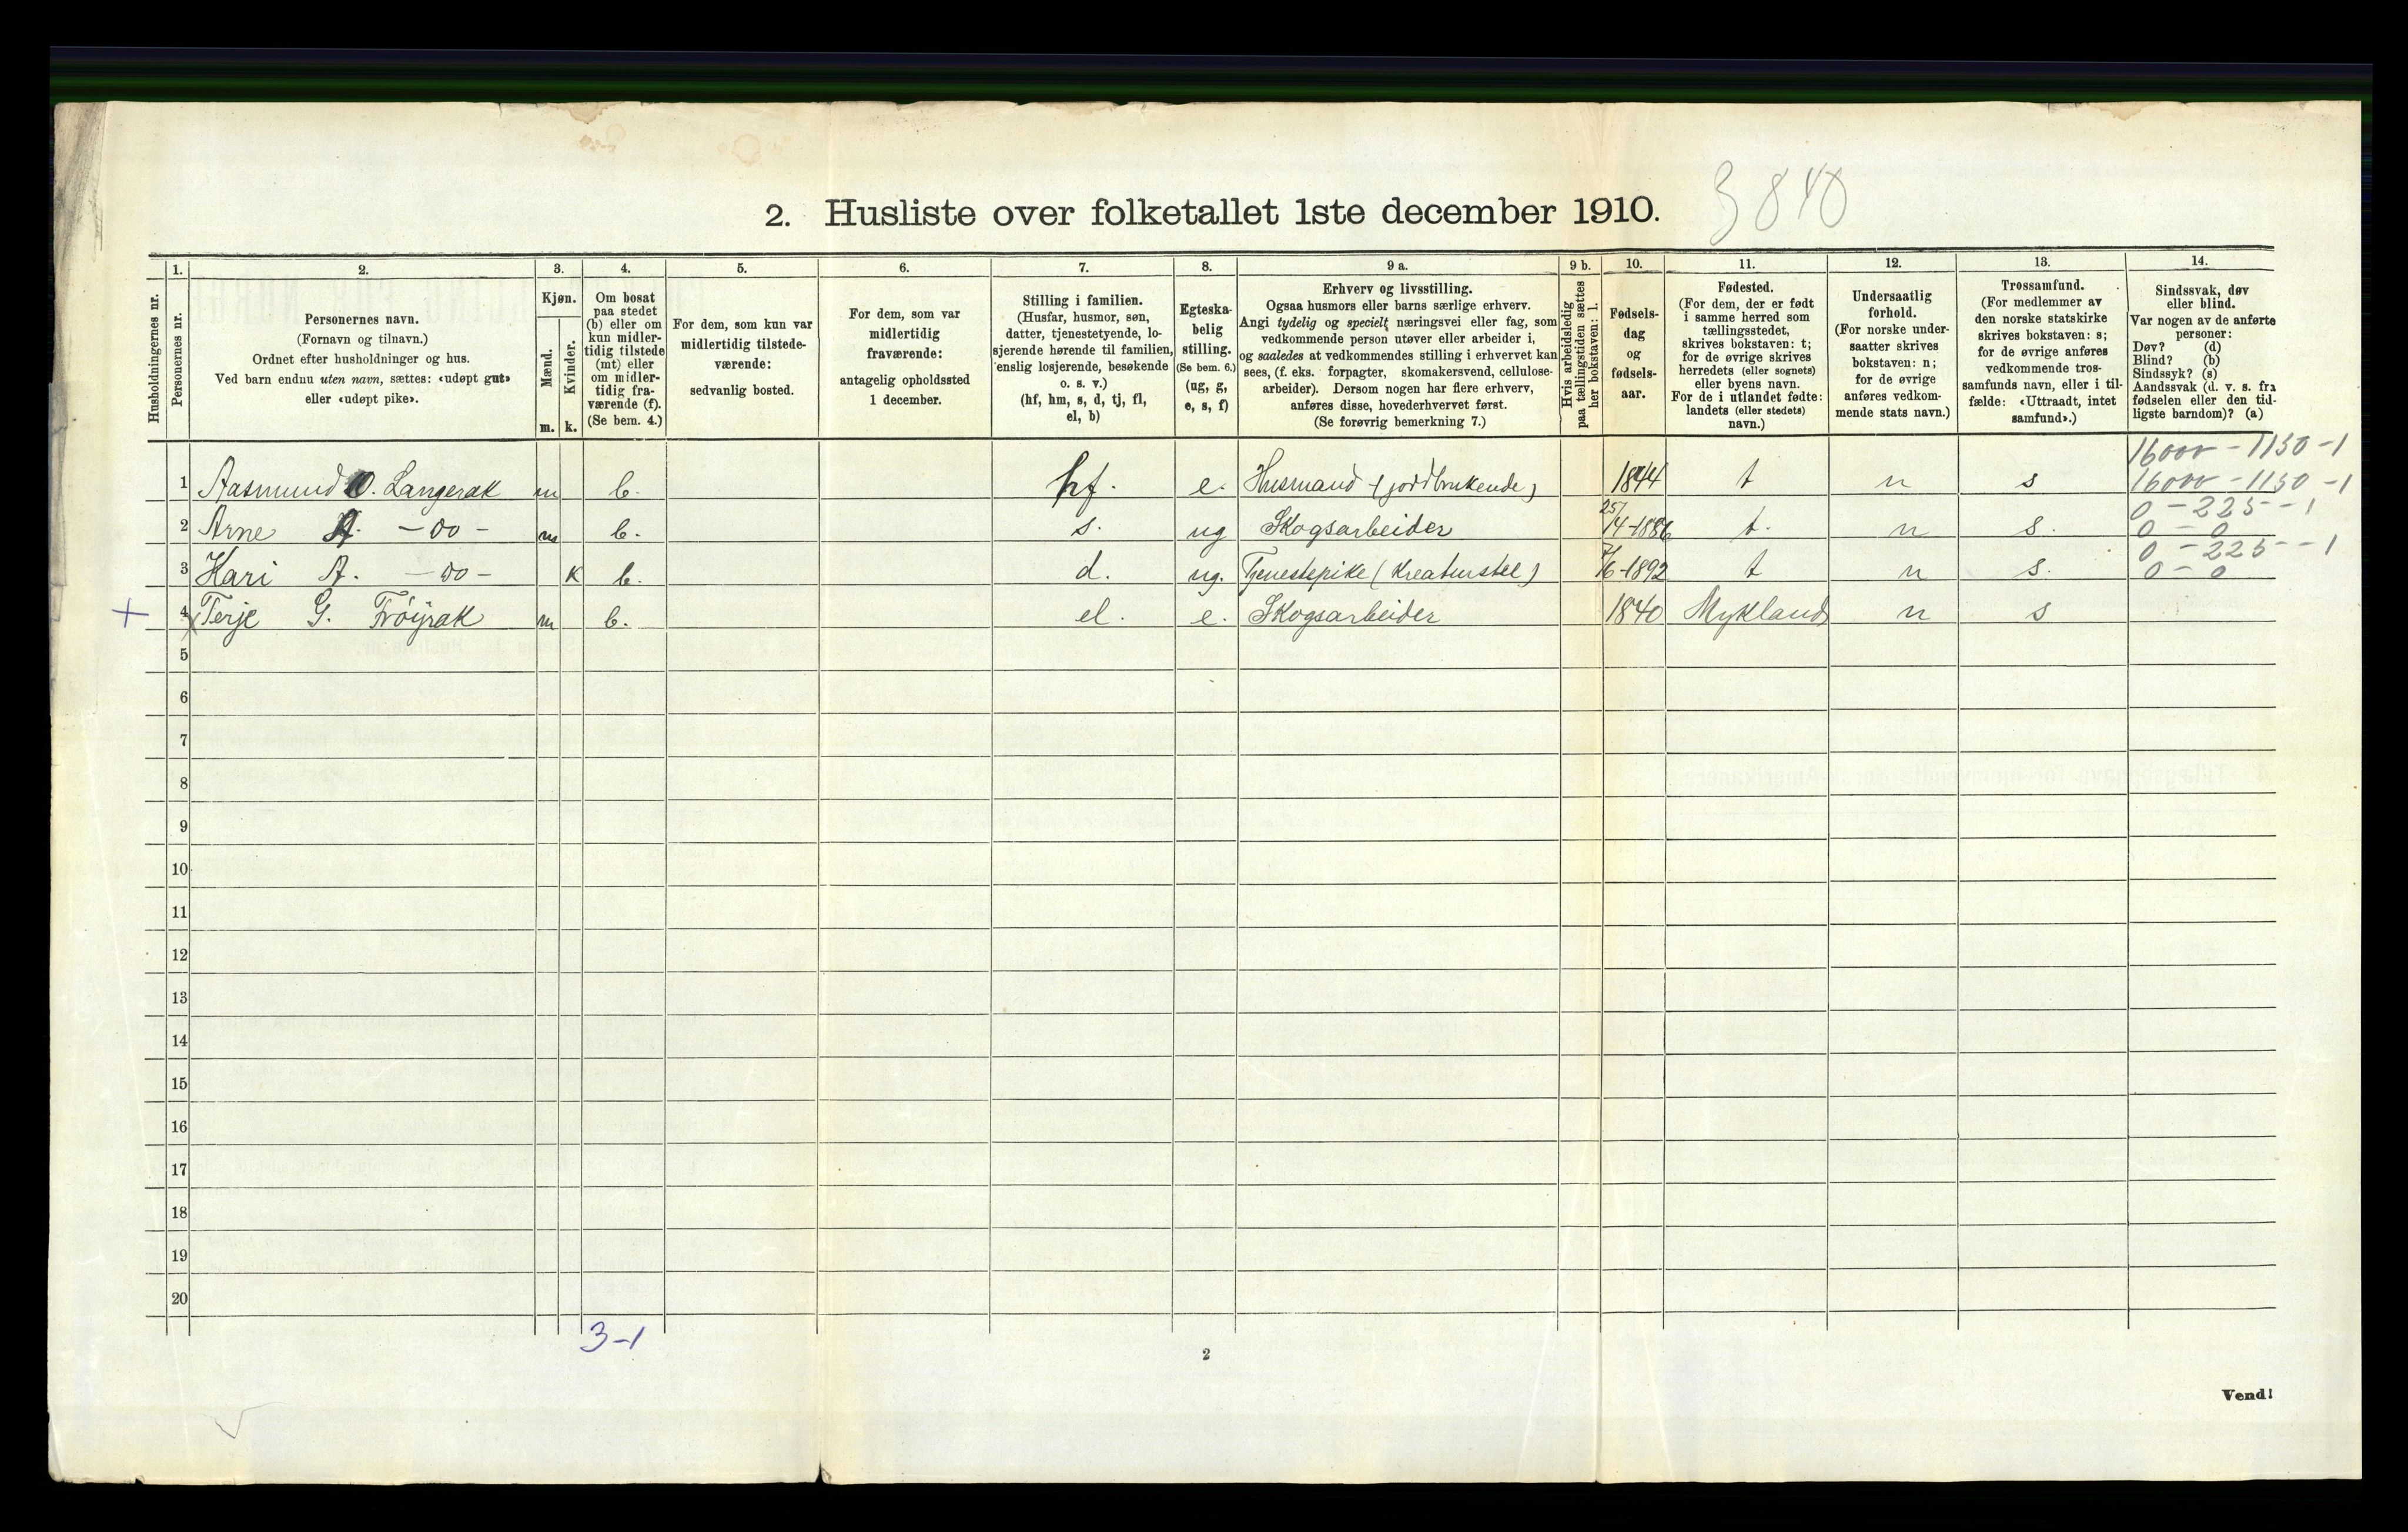 2. Husliste over folketallet 1ste december 1910.
3840
Husholdningernes nr.
1.
Personernes nr.
2.
Personernes navn.
(Fornavn og tilnavn.)
Ordnet efter husholdninger og hus.
Ved barn endnu uten navn, sættes: «udøpt gut»
eller «udøpt pike».
3.
Kjøn.
Mænd.
Kvinder.
m. k.
4.
Om bosat
paa stedet
(b) eller om
kun midler-
tidig tilstede
(mt) eller
om midler-
tidig fra-
værende (f).
(Se bem. 4.)
5.
For dem, som kun var
midlertidig tilstede-
værende:
sedvanlig bosted.
6.
For dem, som var
midlertidig
fraværende:
antagelig opholdssted
1 december.
7.
Stilling i familien.
(Husfar, husmor, søn,
datter, tjenestetyende, lo-
sjerende hørende til familien,
enslig losjerende, besøkende
o. s. v.)
(hf, hm, s, d, tj, fl,
el, b)
8.
Egteska-
belig
stilling.
(Se bem. 6.)
(ug, g,
e, s, f)
9 a.
Erhverv og livsstilling.
Ogsaa husmors eller barns særlige erhverv.
Angi tydelig og specielt næringsvei eller fag, som
vedkommende person utøver eller arbeider i,
og saaledes at vedkommendes stilling i erhvervet kan
sees, (f. eks. forpagter, skomakersvend, cellulose-
arbeider). Dersom nogen har flere erhverv,
anføres disse, hovederhvervet først.
(Se forøvrig bemerkning 7.)
9 b.
Hvis arbeidsledig
paa tællingstiden sættes
her bokstaven: l.
10.
Fødsels-
dag
og
fødsels-
aar.
11.
Fødested.
(For dem, der er født
i samme herred som
tællingsstedet,
skrives bokstaven: t;
for de øvrige skrives
herredets (eller sognets)
eller byens navn.
For de i utlandet fødte:
landets (eller stedets)
navn.)
12.
Undersaatlig
forhold.
(For norske under-
saatter skrives
bokstaven: n;
for de øvrige
anføres vedkom-
mende stats navn.)
13.
Trossamfund.
(For medlemmer av
den norske statskirke
skrives bokstaven: s;
for de øvrige anføres
vedkommende tros-
samfunds navn, eller i til-
fælde: «Uttraadt, intet
samfund».)
14.
Sindssvak, døv
eller blind.
Var nogen av de anførte
personer:
Døv? (d)
Blind? (b)
Sindssyk? (s)
Aandssvak (d. v. s. fra
fødselen eller den tid-
ligste barndom)? (a)
16000 - 1150 - 1
1 Aasmund O. Langerak m b. hf. e. Husmand (jordbrukende) 1844 t n s 16000 - 1150 - 1
0 - 225 - 1
2 Arne A. - do - m b. s. ug Skogsarbeider 25/14-1886 t. n s. 0 - 0
0 - 225 - 1
3 Kari A. - do - k b. d. ug. Tjenestepike (Kreaturstel) 7/6-1892 t n s. 0 - 0
+ 4 x Terje G. Frøyrak m b. el. e. Skogsarbeider 1840 Mykland n s
5
6
7
8
9
10
11
12
13
14
15
16
17
18
19
20
3-1
2
Vend!